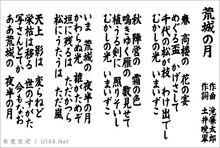 荒城の月
作曲 滝廉太郎
作詞 土井晩翠
春 高楼の 花の宴
めぐる盃 かげさして
千代の松が枝 わけ出でし
むかしの光 いまいずこ
秋 陣営の 霜の色
鳴きゆく雁の 数見せて
植うる剣に 照りそいし
むかしの光 いまいずこ
いま 荒城の 夜半の月
かわらぬ光 誰がためぞ
垣に残るは ただかずら
松に歌うは ただあらし
天上 影は 変らねど
栄枯は移る 世の姿
写さんとてか 今もなお
ああ荒城の 夜半の月
U148.Net